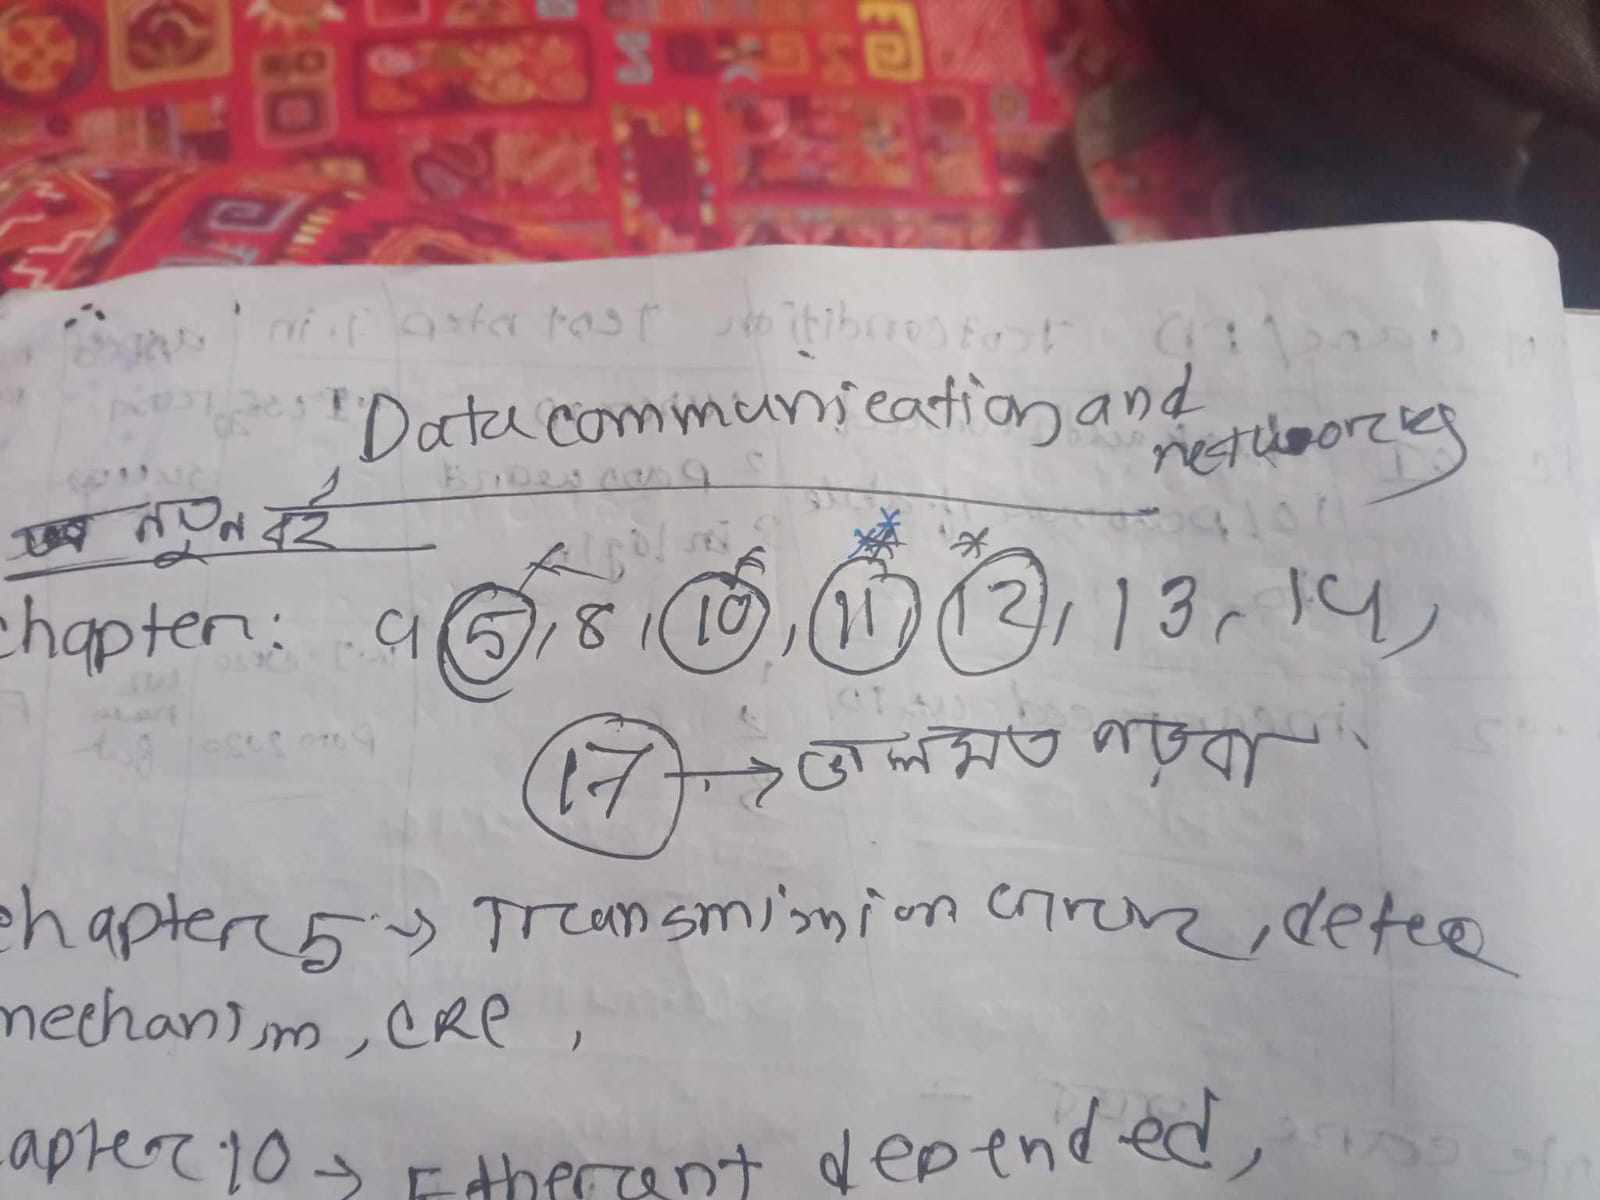 Data communication and
networks
নতুন বই
chapter: 4 5, 8, 10, 11, 12, 13, 14,
17 → ভালমত পড়বা
chapter 5 → Transmission error, detec
mechanism, CRC,
apter 10 → Ethernet depended,